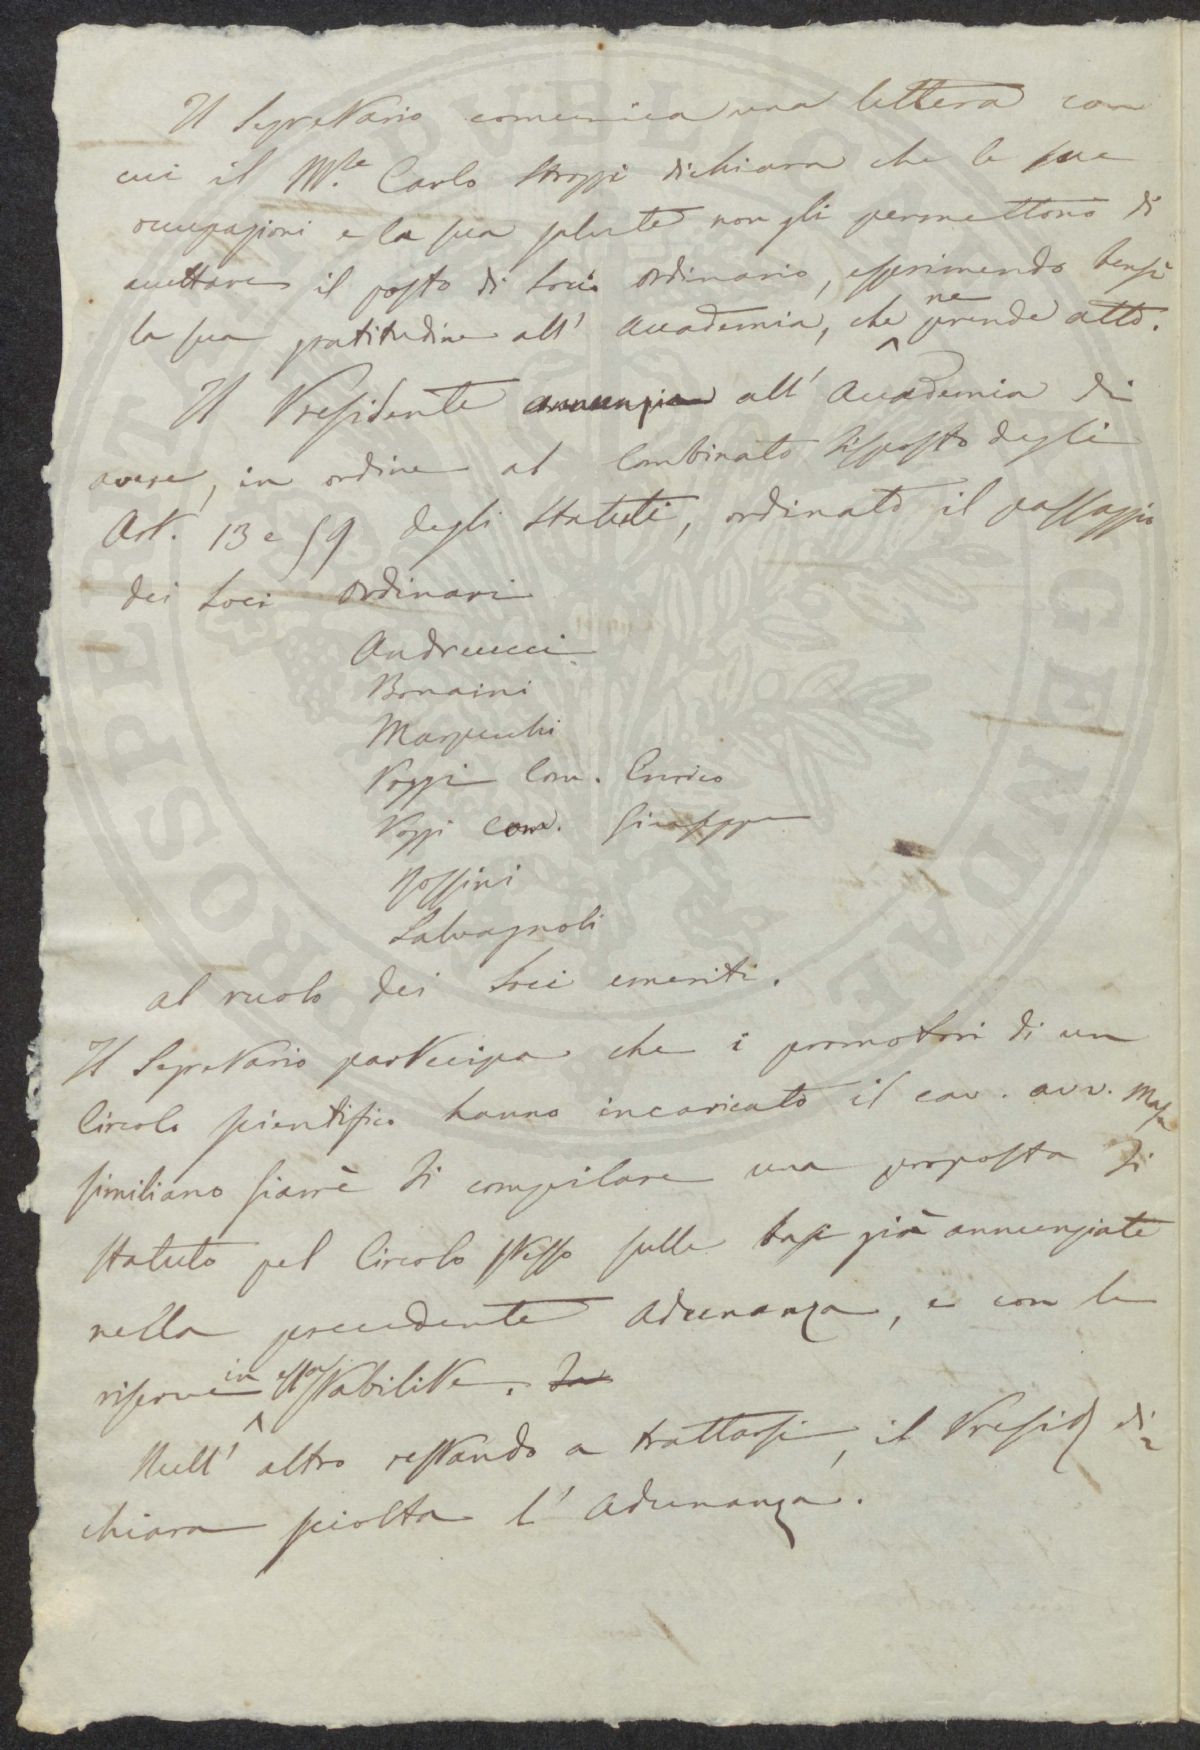 Il Segretario comunica una lettera con
cui il M.se Carlo Strozzi dichiara che le sue
occupazioni e la sua salute non gli permettono di
accettare il posto di Socio ordinario, esprimendo bensì
la sua gratitudine all' Accademia, che ne prende atto.
Il Presidente annunzia all' Accademia di
avere, in ordine al combinato disposto degli
Art. 13 e 59 degli Statuti, ordinato il passaggio
dei Soci ordinari
Andreucci
Bonaini
Marzucchi
Poggi Com. Enrico
Poggi Com. Giuseppe
Rossini
Salvagnoli
al ruolo dei Soci emeriti.
Il Segretario partecipa che i promotori di un
Circolo scientifico hanno incaricato il cav. avv. Mas
similiano Giarrè di compilare una proposta di
statuto pel Circolo stesso sulle basi già annunziate
nella precedente Adunanza, e con le
riserve in essa stabilite.
Null' altro restando a trattarsi, il Presid di-
chiara sciolta l' Adunanza.
PROSPERITATI PUBLICAE AUGENDAE